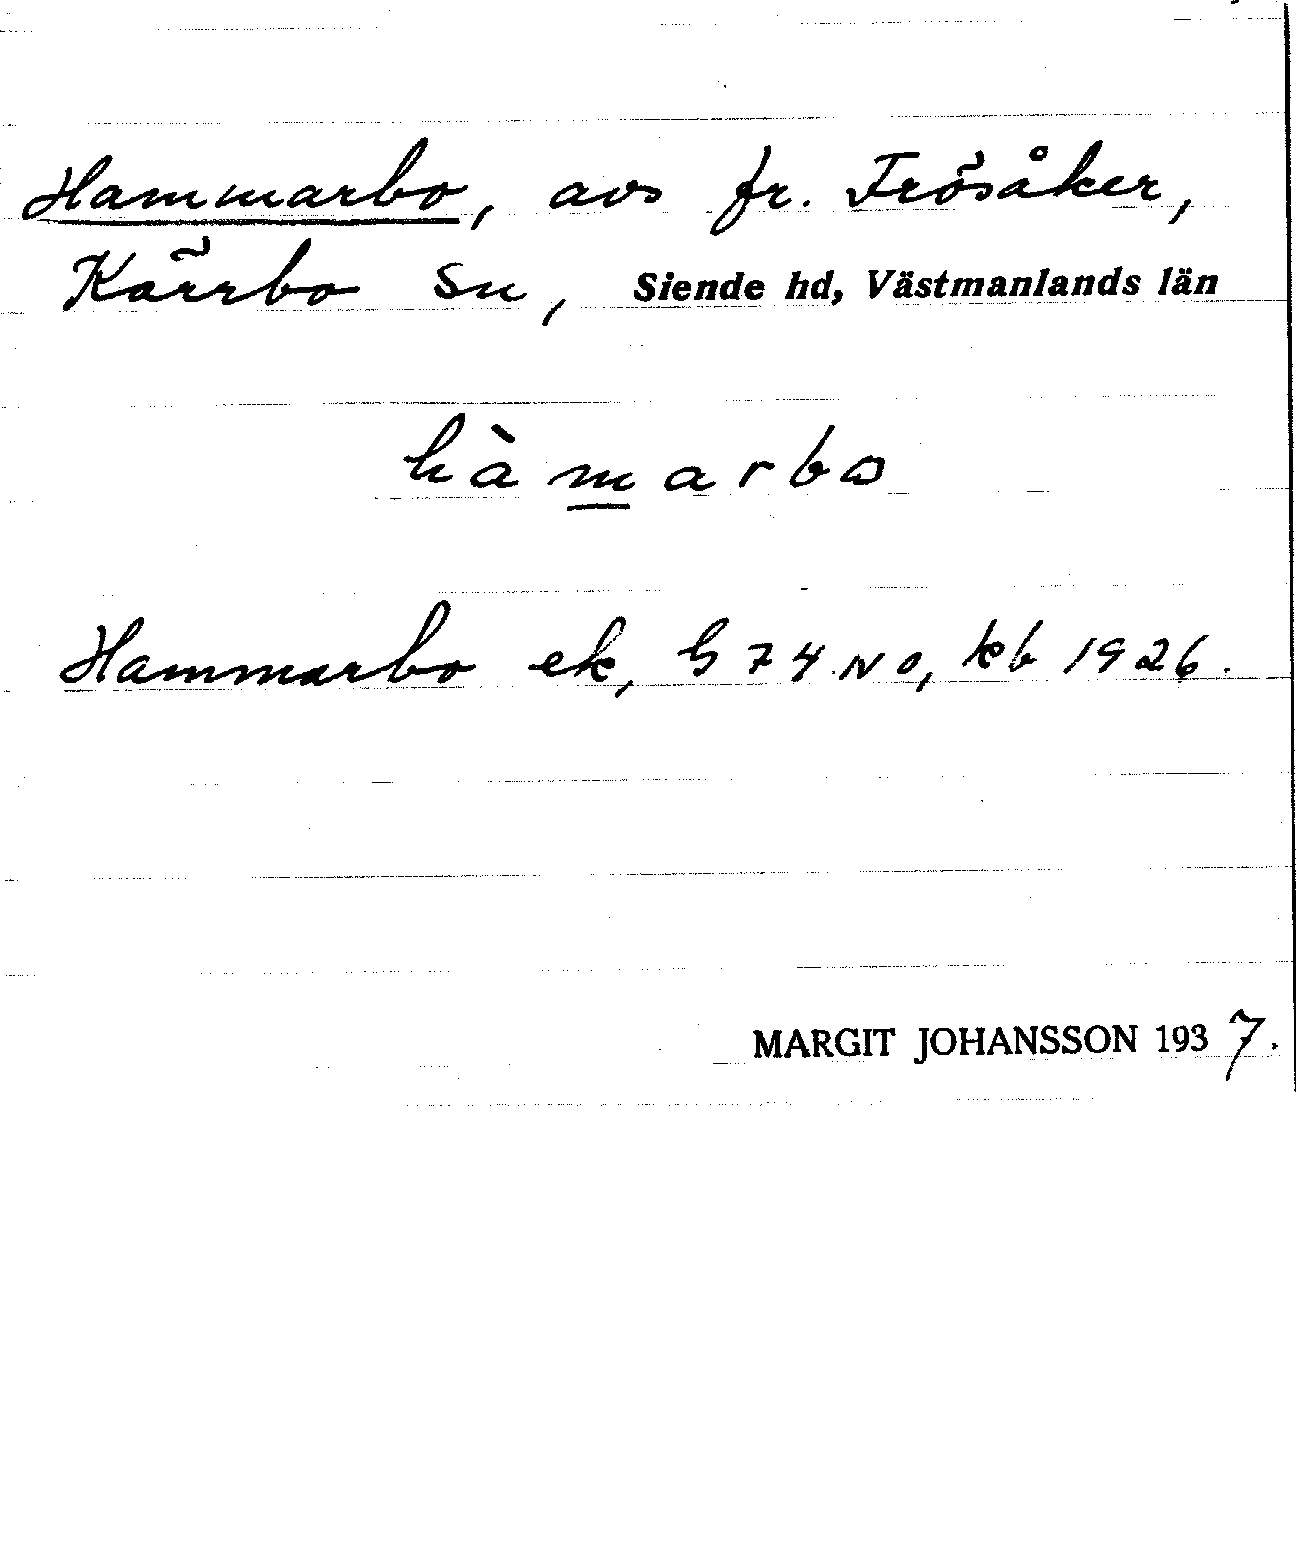 Hammarbo, avs fr. Frösåker,
Kärrbo sn, Siende hd, Västmanlands län
hàmarbo
Hammarbo ek, G 74 NO, kb 1926.
MARGIT JOHANSSON 1937.